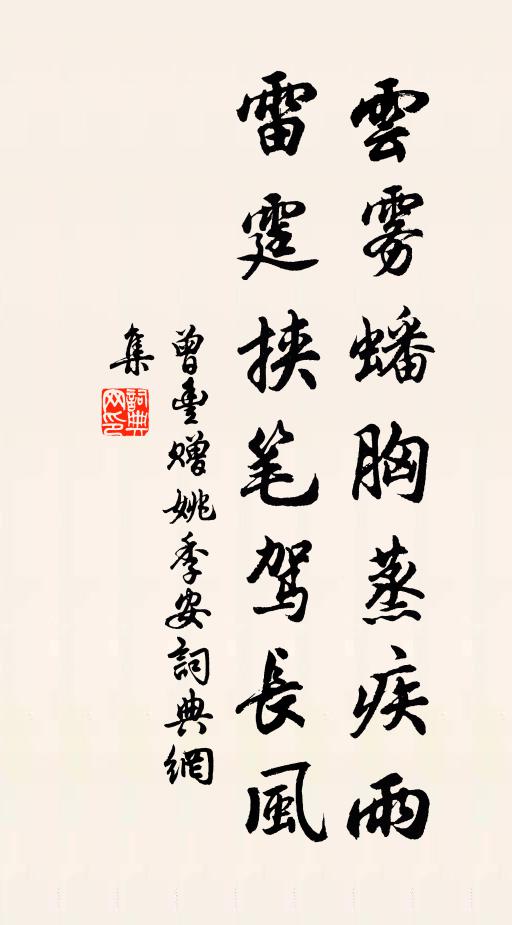 雲雾蟠胸蒸疾雨
雷霆挟笔駕長風
曾豊赠姚季安詞典網
集
詞典
网印